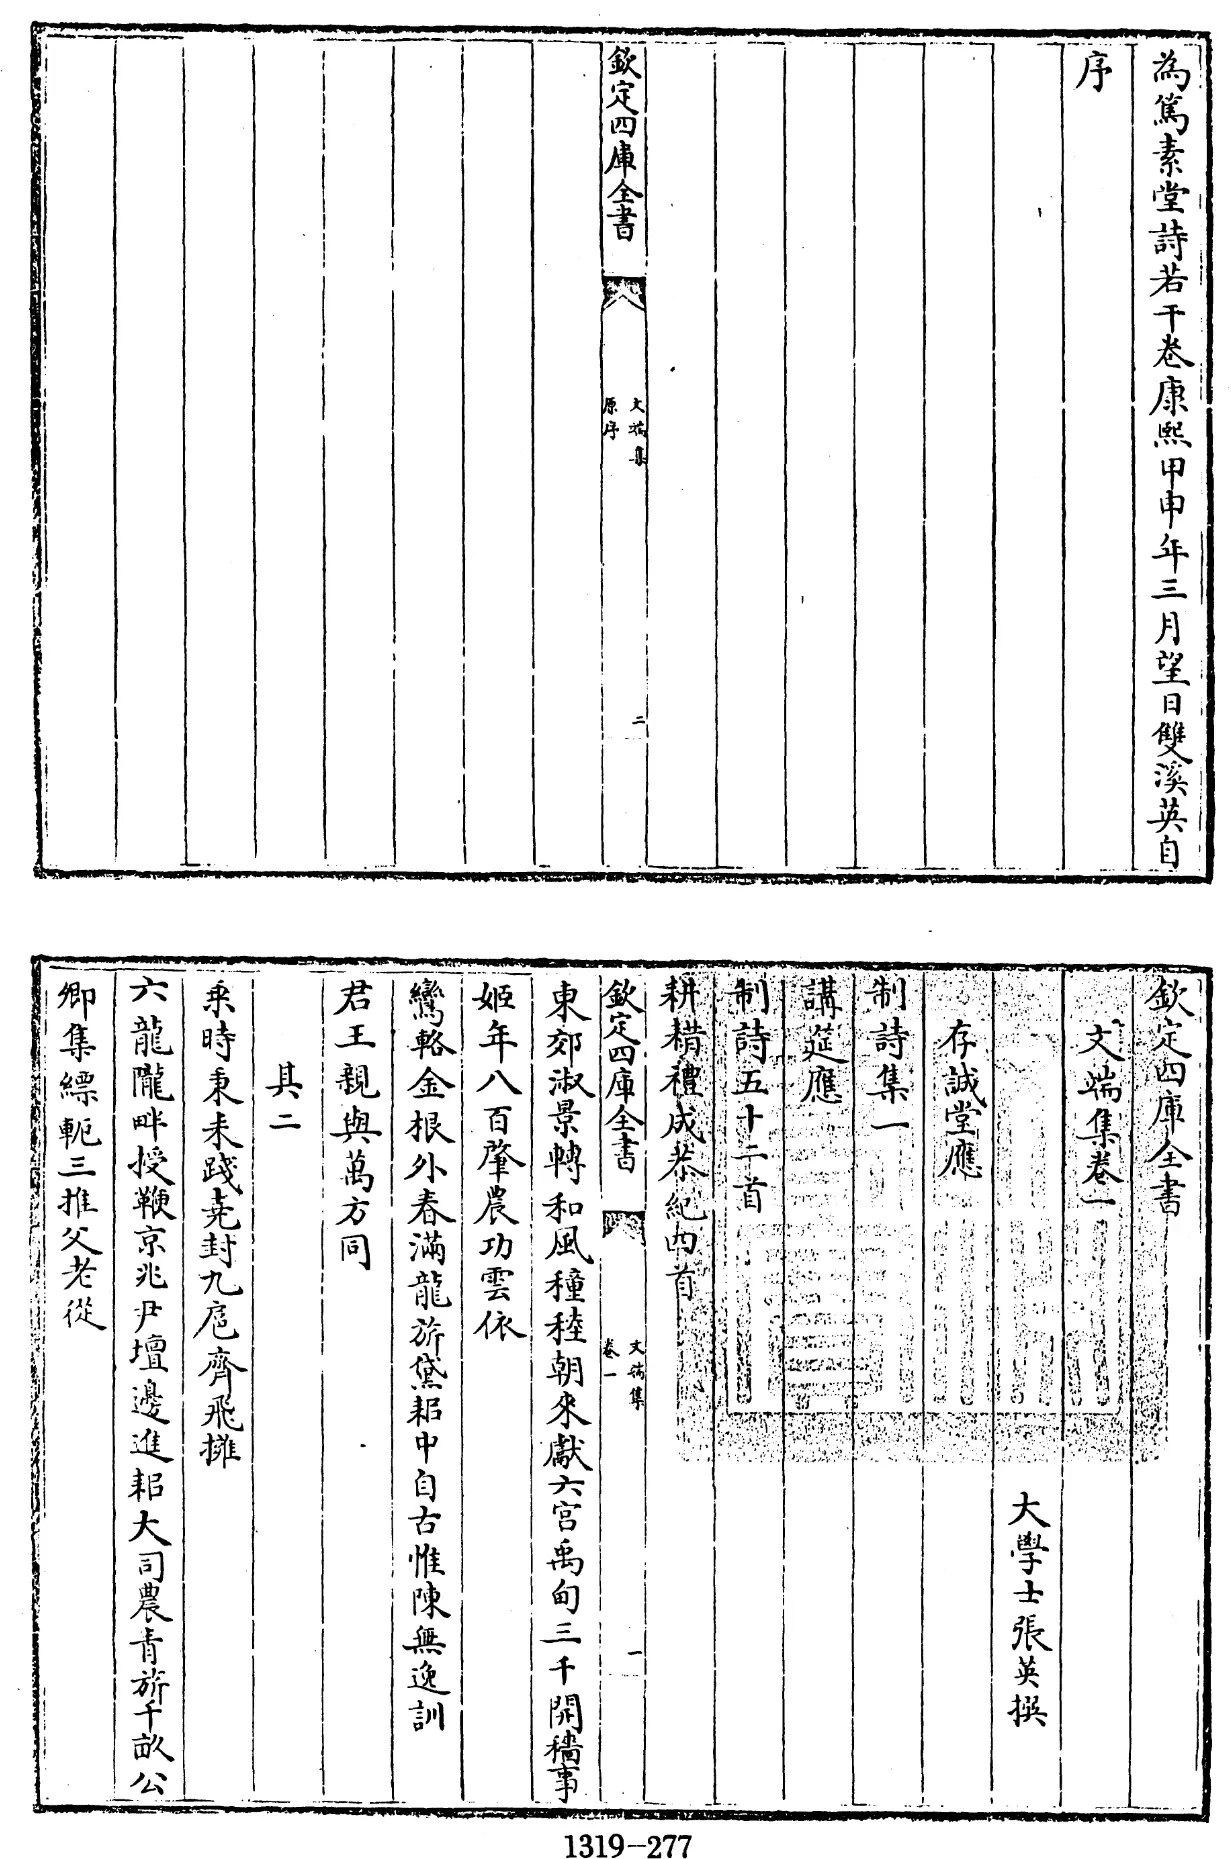 為篤素堂詩若干卷康熙甲申年三月望日雙溪英自
序
欽定四庫全書
文端集
原序
二
欽定四庫全書
文端集卷一
大學士張英撰
存誠堂應
制詩集一
講筵應
制詩五十二首
耕耤禮成恭紀四首
欽定四庫全書
文端集
卷一
一
東郊淑景轉和風穜稑朝來獻六宮禹甸三千開穡事
姬年八百肇農功雲依
鸞輅金根外春滿龍旂黛耜中自古惟陳無逸訓
君王親與萬方同
其二
乘時秉耒踐堯封九扈齊飛擁
六龍隴畔授鞭京兆尹壇邊進耜大司農青旂千畝公
卿集縹軛三推父老從
1319-277